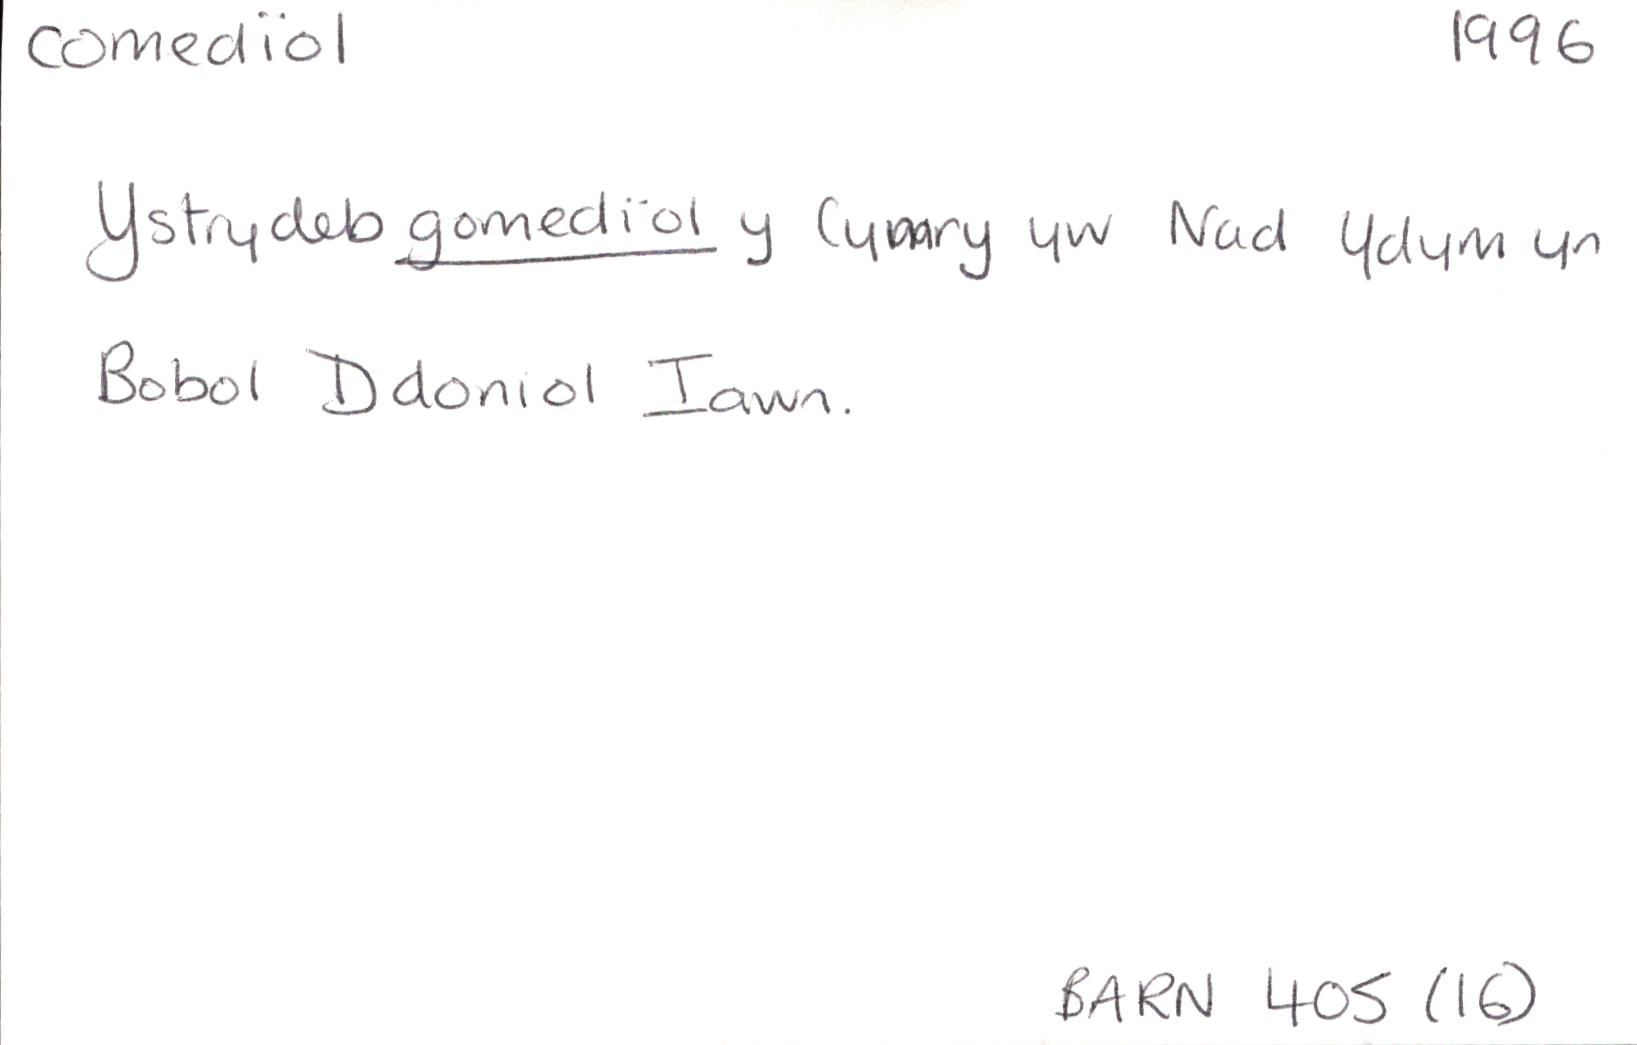 comedïol 1996
Ystrydeb gomedïol y Cymry yw Nad Ydym yn
Bobol Ddoniol Iawn.
BARN 405 (16)